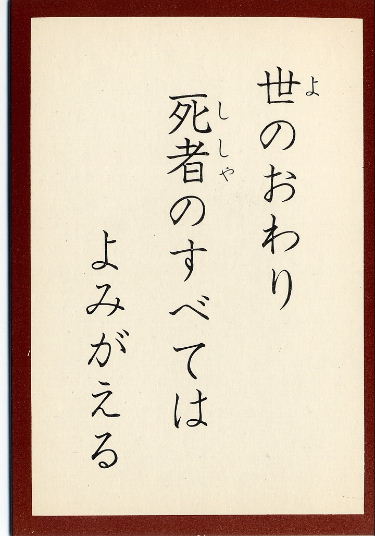 世のおわり
死者のすべては
よみがえる
よ
ししゃ